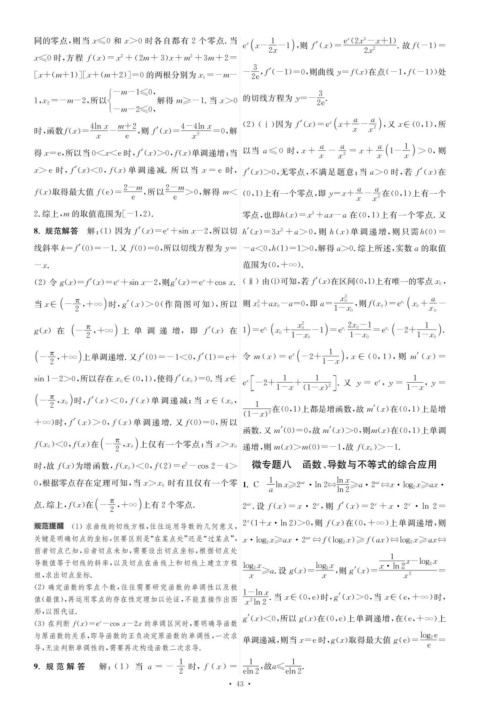 同的零点,则当 x≤0 和 x>0 时各自都有 2 个零点. 当
x≤0 时,方程 f(x)=x²+(2m+3)x+m²+3m+2=
[x+(m+1)][x+(m+2)]=0 的两根分别为 x₁=-m-
1,x₂=-m-2,所以{-m-1≤0, -m-2≤0, 解得 m≥-1. 当 x>0
时,函数f(x)=4ln x/x-(m+2)/e,则 f′(x)=(4-4ln x)/x²=0,解
得 x=e,所以当 0<x<e 时,f′(x)>0,f(x)单调递增;当
x>e 时,f′(x)<0,f(x)单调递减. 所以当 x=e 时,
f(x)取得最大值 f(e)=(2-m)/e,所以(2-m)/e>0,解得 m<
2. 综上,m 的取值范围为[-1,2).
8. 规范解答 解:(1) 因为 f′(x)=eˣ+sin x-2,所以切
线斜率 k=f′(0)=-1. 又 f(0)=0,所以切线方程为 y=
-x.
(2) 令 g(x)=f′(x)=eˣ+sin x-2,则g′(x)=eˣ+cos x.
当 x∈(-π/2,+∞)时,g′(x)>0(作简图可知),所以
g(x) 在 (-π/2,+∞) 上单调递增,即 f′(x) 在
(-π/2,+∞)上单调递增. 又f′(0)=-1<0,f′(1)=e+
sin 1-2>0,所以存在 x₀∈(0,1),使得f′(x₀)=0. 当x∈
(-π/2,x₀)时,f′(x)<0,f(x)单调递减;当 x∈(x₀,
+∞)时,f′(x)>0,f(x)单调递增. 又f(0)=0,所以
f(x₀)<0,f(x)在(-π/2,x₀)上仅有一个零点;当 x>x₀
时,故 f(x)为增函数,f(x₀)<0,f(2)=e²-cos 2-4>
0,根据零点存在定理可知,当 x>x₀ 时有且仅有一个零
点. 综上,f(x)在(-π/2,+∞)上有 2 个零点.
规范提醒 (1) 求曲线的切线方程,往往运用导数的几何意义,
关键是明确切点的坐标,但要区别是“在某点处”还是“过某点”,
前者切点已知,后者切点未知,需要设出切点坐标,根据切点处
导数值等于切线的斜率,以及切点在曲线上和切线上建立方程
组,求出切点坐标.
(2) 确定函数的零点个数,往往需要研究函数的单调性以及极
值(最值),再运用零点的存在性定理加以论证,不能直接作出图
形,以图代证.
(3) 在判断 f(x)=eˣ-cos x-2x 的单调区间时,要明确导函数
与原函数的关系,即导函数的正负决定原函数的单调性,一次求
导,无法判断单调性的,需要再次构造函数二次求导.
9. 规范解答 解:(1) 当 a=-1/2 时,f(x)=
eˣ(x-1/(2x)-1),则 f′(x)=eˣ(2x²-x+1)/(2x²). 故 f(-1)=
-3/(2e),f′(-1)=0,则曲线 y=f(x)在点(-1,f(-1))处
的切线方程为 y=-3/(2e).
(2) (ⅰ)因为 f′(x)=eˣ(x+a/x-a/x²),又 x∈(0,1),所
以当 a≤0 时,x+a/x-a/x²=x+a/x(1-1/x)>0,则
f′(x)>0,无零点,不满足题意;当 a>0 时,若 f′(x)在
(0,1)上有一个零点,即 y=x+a/x-a/x²在(0,1)上有一个
零点,也即h(x)=x³+ax-a 在(0,1)上有一个零点. 又
h′(x)=3x²+a>0,则 h(x)单调递增,则只需 h(0)=
-a<0,h(1)=1>0,解得 a>0. 综上所述,实数 a 的取值
范围为(0,+∞).
(ⅱ) 由(ⅰ)可知,若 f′(x)在区间(0,1)上有唯一的零点 x₀,
则 x₀³+ax₀-a=0,即 a=x₀³/(1-x₀),则f(x₀)=e^x₀(x₀+a/x₀-
1)=e^x₀(x₀+x₀²/(1-x₀)-1)=e^x₀ (2x₀-1)/(1-x₀)=e^x₀(-2+1/(1-x₀)).
令 m(x)=eˣ(-2+1/(1-x)),x∈(0,1),则 m′(x)=
eˣ[-2+1/(1-x)+1/(1-x)²]. 又 y=eˣ,y=1/(1-x),y=
1/(1-x)²在(0,1)上都是增函数,故 m′(x)在(0,1)上是增
函数. 又 m′(0)=0,故 m′(x)>0,则m(x)在(0,1)上单调
递增,则 m(x)>m(0)=-1,故 f(x₀)>-1.
微专题八 函数、导数与不等式的综合应用
1. C 1/a ln x≥2ᵃˣ·ln 2⇔ln x/ln 2≥a·2ᵃˣ⇔x·log₂x≥ax·
2ᵃˣ. 设 f(x)=x·2ˣ,则 f′(x)=2ˣ+x·2ˣ·ln 2=
2ˣ(1+x·ln 2)>0,则 f(x)在(0,+∞)上单调递增,则
x·log₂x≥ax·2ᵃˣ⇔f(log₂x)≥f(ax)⇔log₂x≥ax⇔
log₂x/x≥a. 设 g(x)=log₂x/x,则 g′(x)=(1/(x·ln 2)·x-log₂x)/x²=
(1-ln x)/(x²ln 2). 当 x∈(0,e)时,g′(x)>0,当 x∈(e,+∞)时,
g′(x)<0,所以 g(x)在(0,e)上单调递增,在(e,+∞)上
单调递减,则当 x=e 时,g(x)取得最大值 g(e)=log₂e/e=
1/(eln 2),故a≤1/(eln 2).
· 43 ·